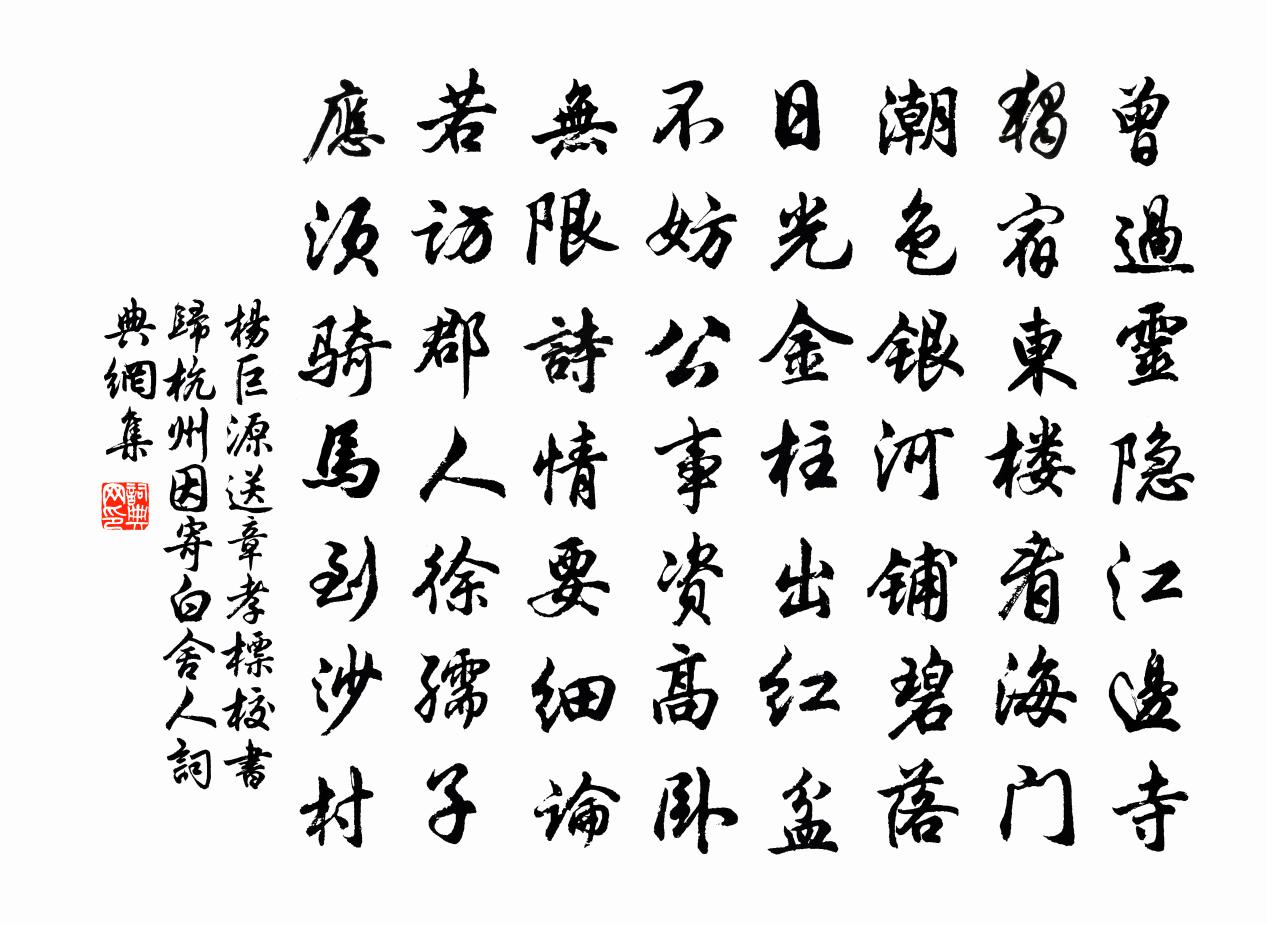 曾過靈隐江邊寺
獨宿東楼看海门
潮色銀河铺碧落
日光金柱出红盆
不妨公事资高卧
無限詩情要细論
若访郡人徐孺子
應须骑馬到沙村
楊巨源送章孝標校書
歸杭州因寄白舍人詞
典網集
詞典
网印